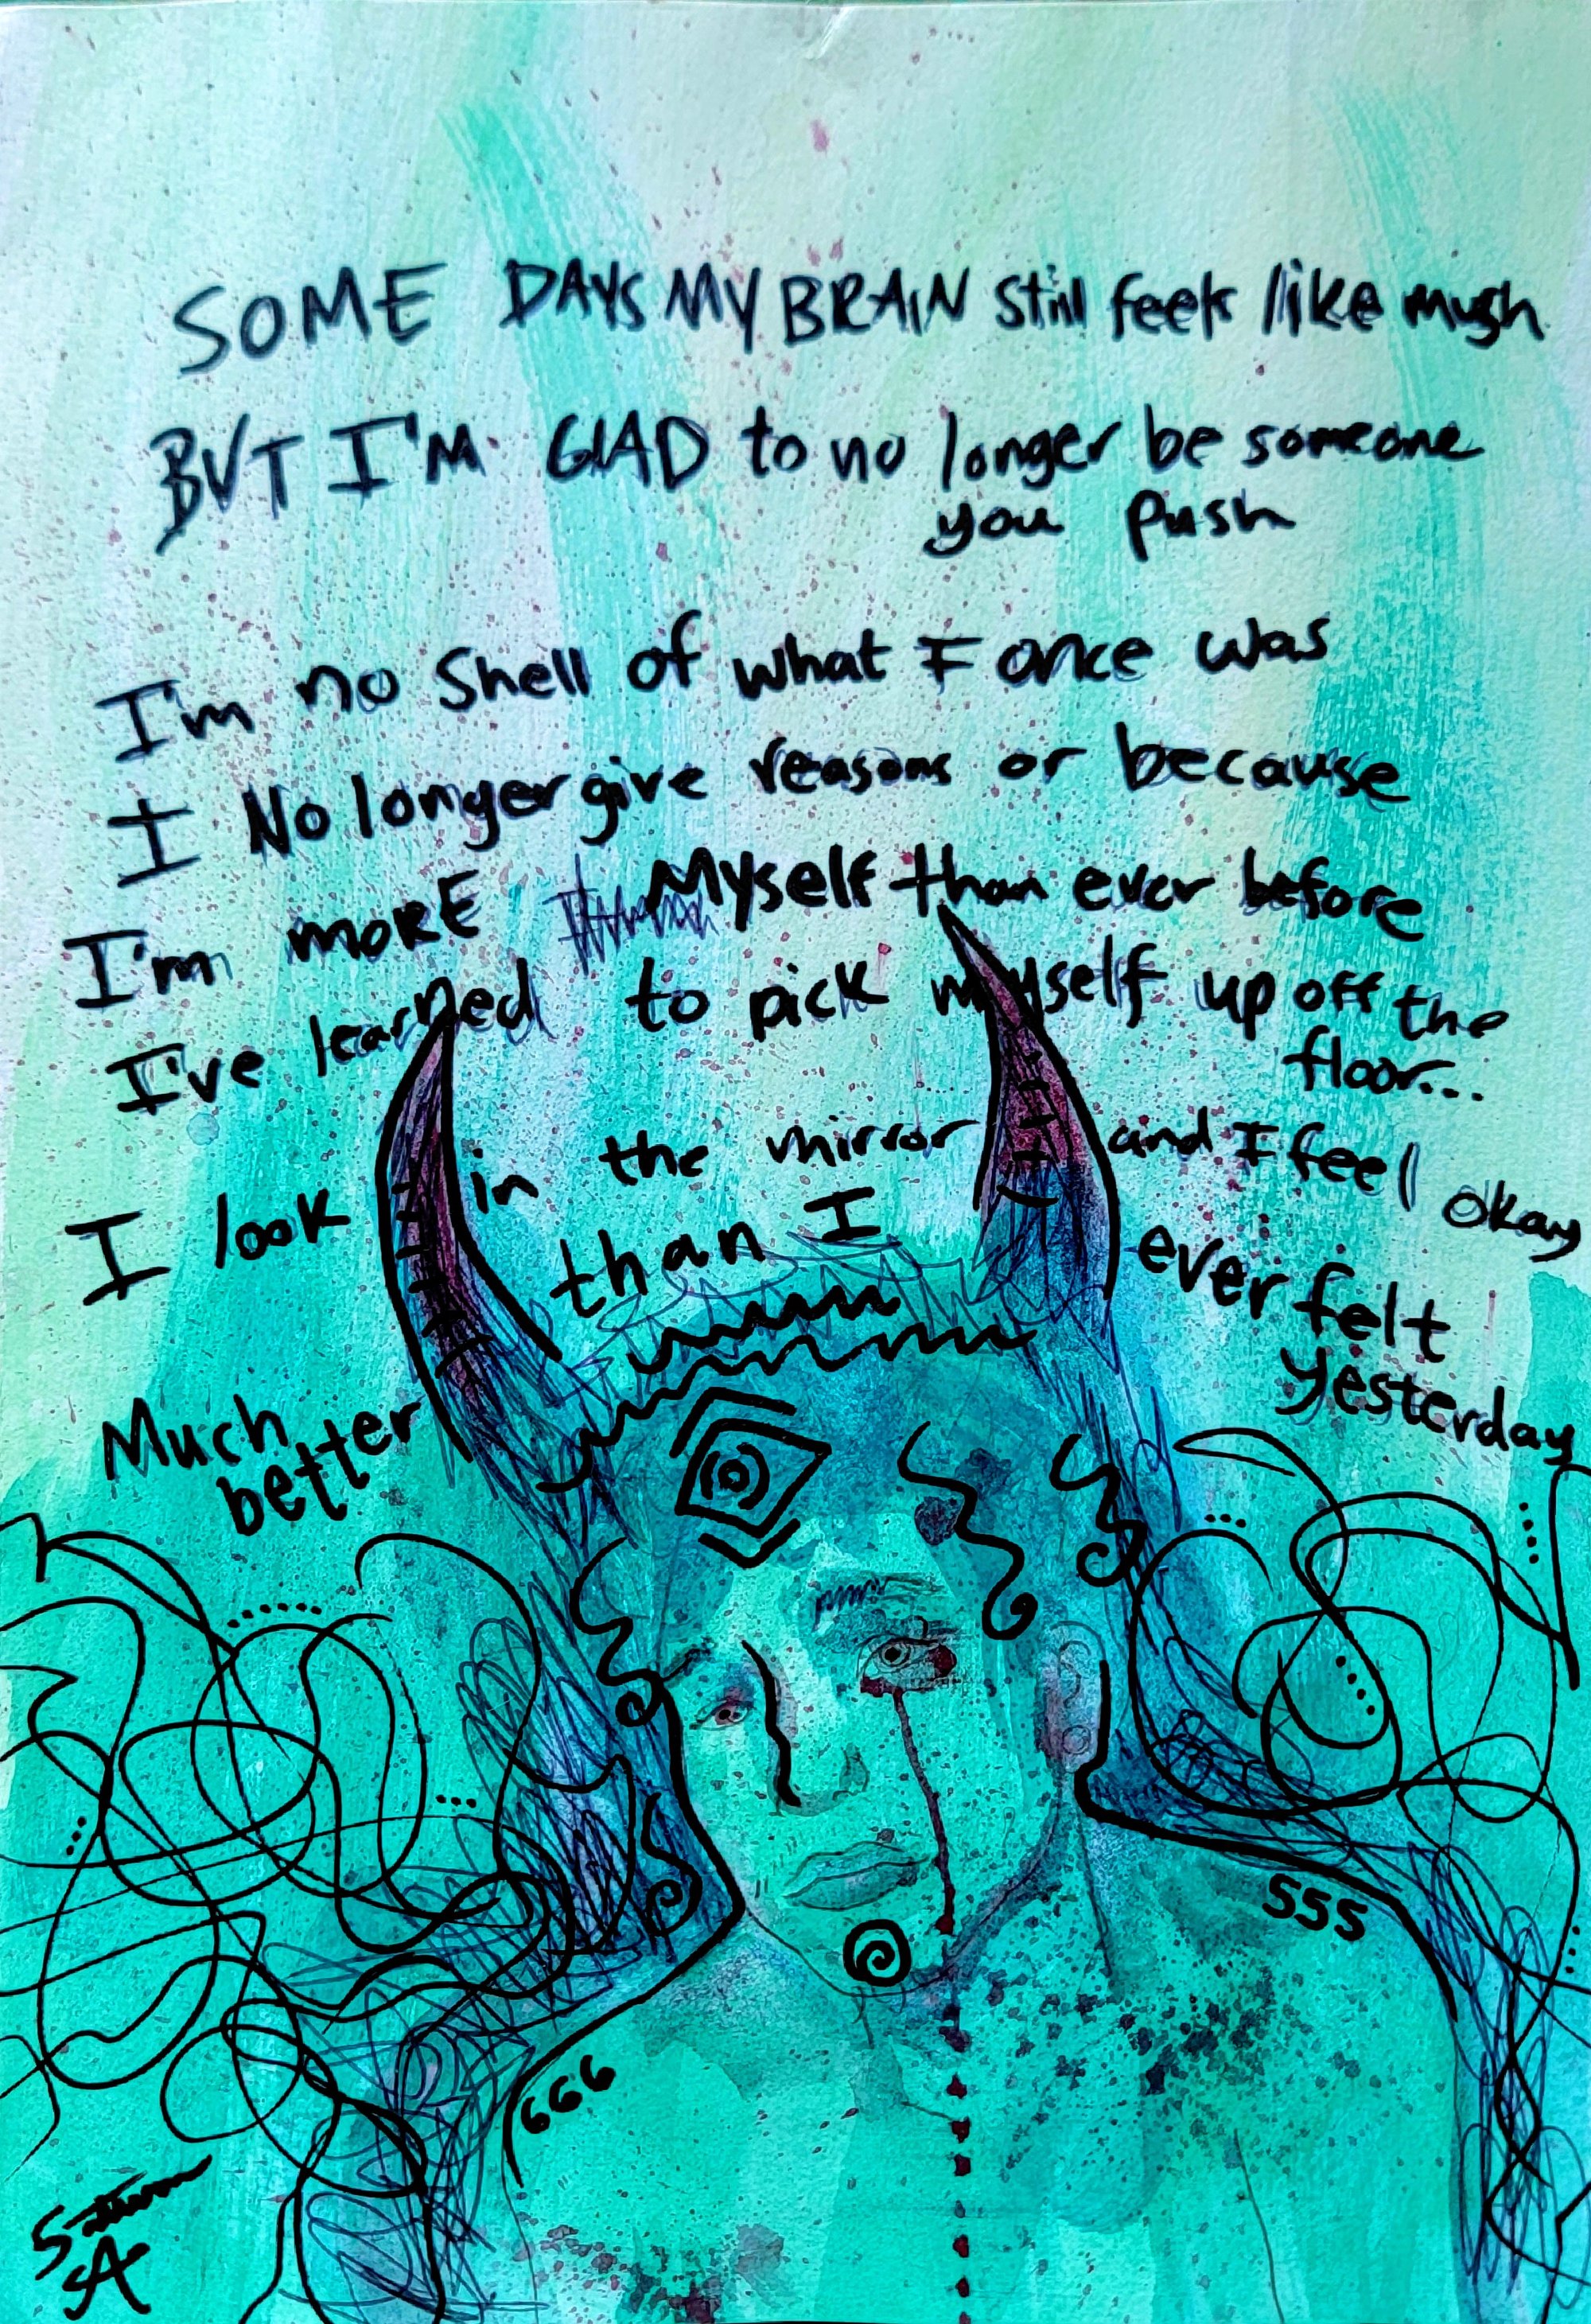 SOME DAYS MY BRAIN still feels like mush
BUT I'M GLAD to no longer be someone
you push
I'm no shell of what I once was
I No longer give reasons or because
I'm moRE Myself than ever before
I've learned to pick myself up off the
floor...
I look in the mirror and I feel okay
Much better than I ever felt yesterday
555
666
SA